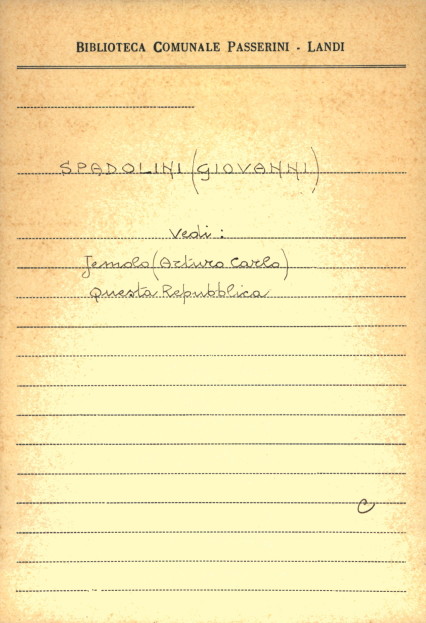 BIBLIOTECA COMUNALE PASSERINI - LANDI
SPADOLINI (GIOVANNI)
Vedi :
Jemolo (Arturo Carlo)
Questa Repubblica
C